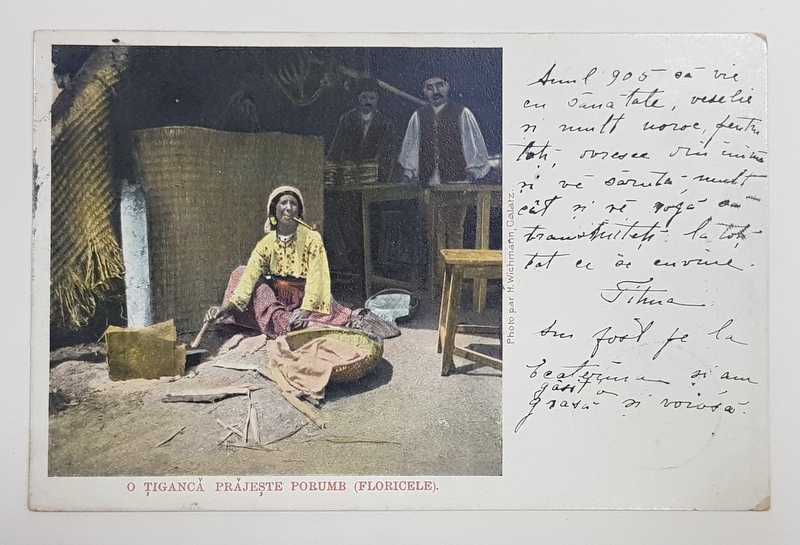 O ȚIGANCĂ PRĂJEȘTE PORUMB (FLORICELE).
Photo par H. Wichmann, Galatz.
Anul 905 să vie
cu sănătate, veselie
și mult noroc, pentru
toți, doresce din inimă
și vĕ sărută mult
cât și vĕ rogă
transmiteți la toți
tot ce se cuvine.
Am fost pe la
Ecaterina și am
găsit o
grasă și voiósă.